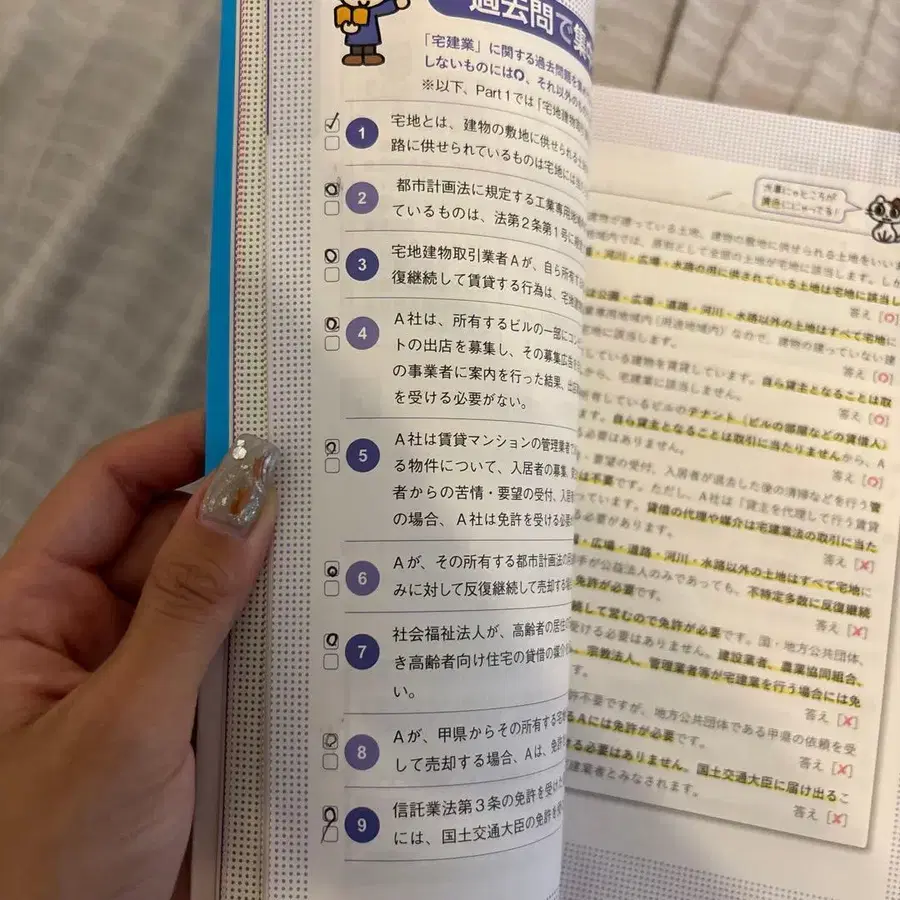 過去問で集
「宅建業」に関する過去問題を
しないものには○、それ以外のも
※以下、Part1では「宅地建物
1 宅地とは、建物の敷地に供せられる
路に供せられているものは宅地には
2 都市計画法に規定する工業専用地域
ているものは、法第2条第1号に
3 宅地建物取引業者Aが、自ら所有
復継続して賃貸する行為は、宅地
4 A社は、所有するビルの一部にコン
トの出店を募集し、その募集広告を
の事業者に案内を行った結果、出店
を受ける必要がない。
5 A社は賃貸マンションの管理業者
る物件について、入居者の募集、
者からの苦情・要望の受付、入居
の場合、A社は免許を受ける必要
6 Aが、その所有する都市計画法の
みに対して反復継続して売却する
7 社会福祉法人が、高齢者の居住の
き高齢者向け住宅の貸借の媒介
い。
8 Aが、甲県からその所有する宅地
して売却する場合、Aは、免許
9 信託業法第3条の免許を受けた
には、国土交通大臣の免許を
水筆にゃところが
黄色ににゃってる!
建物が建っている土地、建物の敷地に供せられる土地をいいま
地域内では、原則として全部の土地が宅地に該当します。しか
・河川・広場・水路の用に供されている土地は宅地に該当し
答え[○]
は公園・広場・道路・河川・水路以外の土地はすべて宅地に
業専用地域内(用途地域内)なので、建物の建っていない建
宅地に該当します。
答え[○]
している建物を賃貸しています。自ら貸主となることは取
から、宅建業に該当しません。
答え[○]
所有しているビルのテナント(ビルの部屋などの賃借人)
ます。自ら貸主となることは取引に当たりませんから、A
る必要はありません。
答え[○]
・要望の受付、入居者が退去した後の清掃などを行う管
は不要です。ただし、A社は「貸主を代理して行う賃貸
っています。貸借の代理や媒介は宅建業法の取引に当た
る必要があります。
答え[×]
・広場・道路・河川・水路以外の土地はすべて宅地に
手が公益法人のみであっても、不特定多数に反復継続
免許が必要です。
答え[×]
続して営むので免許が必要です。国・地方公共団体、
受ける必要はありません。建設業者、農業協同組合、
、宗教法人、管理業者等が宅建業を行う場合には免
す。
答え[×]
不要ですが、地方公共団体である甲県の依頼を受
るAには免許が必要です。
答え[×]
ける必要はありません。国土交通大臣に届け出るこ
建業者とみなされます。
答え[×]